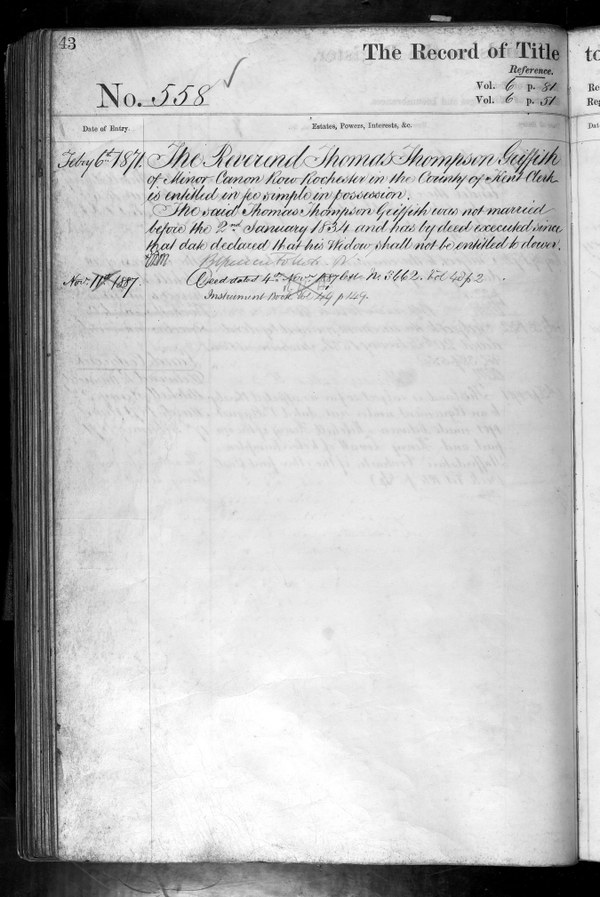 43
The Record of Title
to
Reference.
No. 558
Vol. 6 p. 81
Vol. 6 p. 51
Date of Entry.
Estates, Powers, Interests, &c.
Febry 6th 1871. The Reverend Thomas Thompson Griffith
of Minor Canon Row Rochester in the County of Kent Clerk
is entitled in fee simple in possession.
The said Thomas Thompson Griffith was not married
before the 2nd January 1834 and has by deed executed since
that date declared that his Widow shall not be entitled to dower.
Nov. 11th 1887. Deed dated 4th No 3662. Vol 40 p 2
Instrument Book Vol p 249.